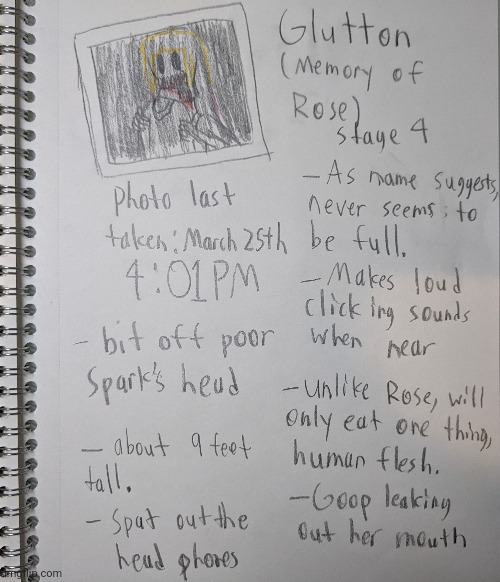 Glutton
(Memory of
Rose)
Stage 4
photo last
taken: March 25th
4:01PM
- bit off poor
Spark's head
- about 9 feet
tall.
- Spat out the
head phones
- As name suggests,
never seems to
be full.
- Makes loud
clicking sounds
when near
- Unlike Rose, will
only eat one thing,
human flesh.
- Goop leaking
out her mouth
imgflip.com